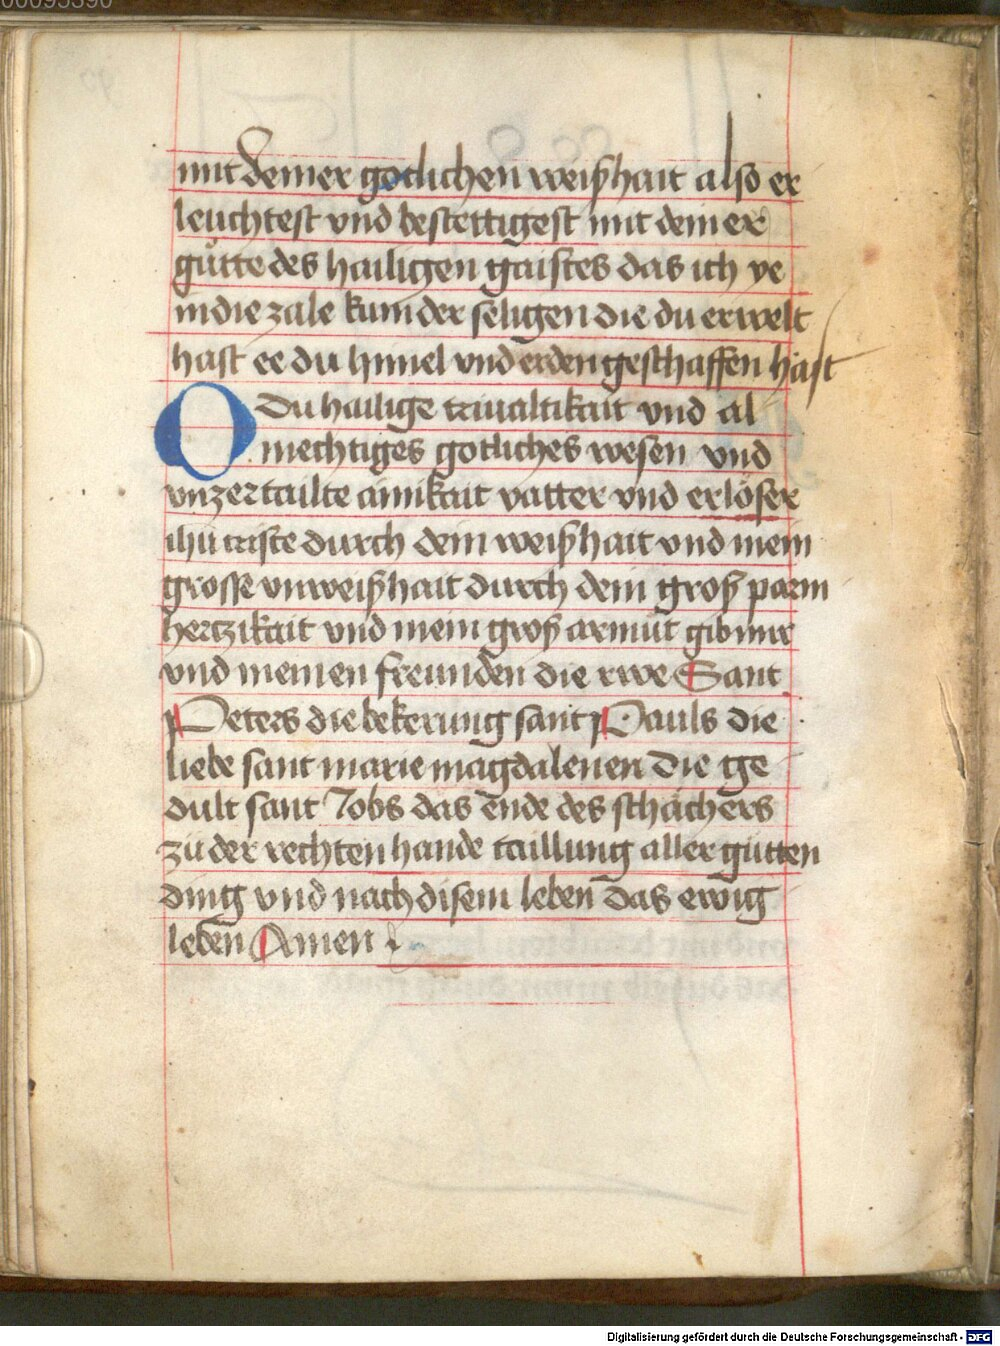 mit deiner gotlichen weißhait also er
leuchtest vnd bestettigest mit deiner
gůtte des hailigen gaistes das ich ye
in die zale kum der seligen die du erwelt
hast ee du himel vnd erden geschaffen hast
O Du hailige triualtikait vnd al
mechtiges gotliches wesen vnd
vnzertailte ainikait vatter vnd erlöser
ihu criste durch dein weißhait vnd mein
grosse vnweißhait durch dein groß parm
hertzikait vnd mein groß armut gib mir
vnd meinen freunden die rwe Sant
Peters die bekerung sant Pauls die
liebe sant marie magdalenen die ge
dult sant Jobs das ende des schächers
zu der rechten hande taillung aller gutten
ding vnd nach disem leben das ewig
leben Amen
Digitalisierung gefördert durch die Deutsche Forschungsgemeinschaft - DFG